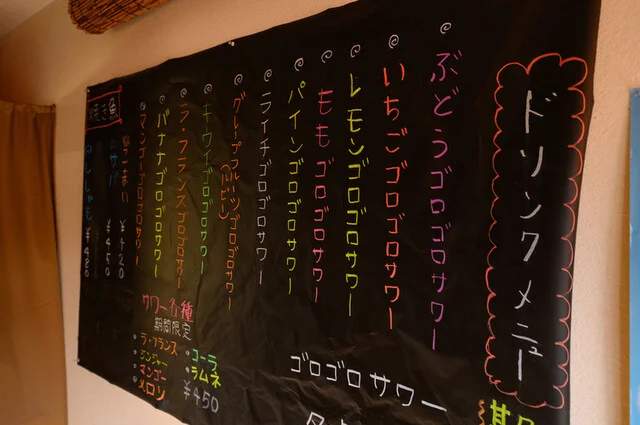 ドリンクメニュー
ぶどうゴロゴロサワー
いちごゴロゴロサワー
レモンゴロゴロサワー
ももゴロゴロサワー
パインゴロゴロサワー
ライチゴロゴロサワー
グレープフルーツゴロゴロサワー
キウイゴロゴロサワー
ラ・フランスゴロゴロサワー
バナナゴロゴロサワー
マンゴーゴロゴロサワー
ゴロゴロサワー
サワー各種
期間限定
・ラ・フランス
・ジンジャー
・マンゴー
・メロン
・コーラ
・ラムネ
¥450
焼き魚
¥420
サバ ¥450
ししゃも ¥480